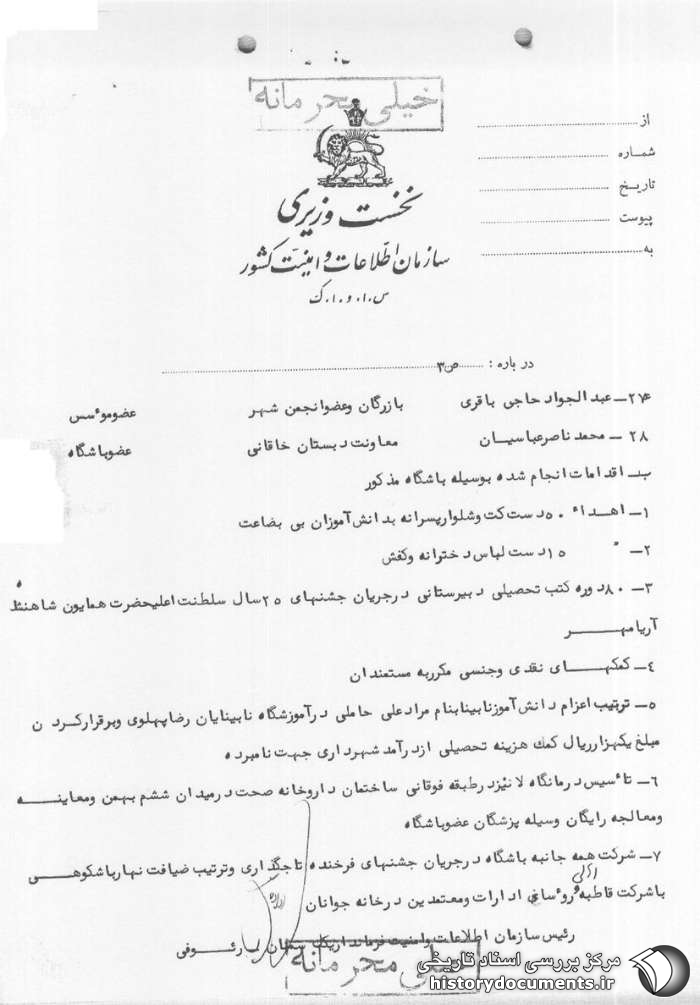 خیلی محرمانه
از
شماره
تاریخ
پیوست
به
نخست وزیری
سازمان اطلاعات و امنیت کشور
س.ا.و.ا.ک
در باره : ص۳
۲۷ـ عبدالجواد حاجی باقری بازرگان وعضوانجمن شهر عضوموٴسس
۲۸ ـ محمد ناصرعباسیان معاونت دبستان خاقانی عضوباشگاه
بـ اقدامات انجام شده بوسیله باشگاه مذکور
۱ـ اهداء ۵۰ دست کت وشلوارپسرانه بدانش‌آموزان بی بضاعت
۲ـ " ۱۵ دست لباس دخترانه وکفش
۳ـ ۸۰ دوره کتب تحصیلی دبیرستانی درجریان جشنهای ۲۵ سال سلطنت اعلیحضرت همایون شاهنشاه
آریامهر
٤ـ کمکهای نقدی وجنسی مکرربه مستمندان
۵ـ ترتیب اعزام دانش‌آموزنابینابنام مرادعلی حاملی درآموزشگاه نابینایان رضاپهلوی وبرقرارکردن
مبلغ یکهزارریال کمک هزینه تحصیلی ازدرآمد شهرداری جهت نامبرده
۶ـ تأسیس درمانگاه لانیزدرطبقه فوقانی ساختمان داروخانه صحت درمیدان ششم بهمن ومعاینه
ومعالجه رایگان وسیله پزشگان عضوباشگاه
۷ـ شرکت همه جانبه باشگاه درجریان جشنهای فرخنده تاجگذاری وترتیب ضیافت نهارباشکوهی
باشرکت قاطبه اهالی وروٴسای ادارات ومعتمدین درخانه جوانان
رئیس سازمان اطلاعات وامنیت فرمانداریکل سمنان رئوفی
خیلی محرمانه
مرکز بررسی اسناد تاریخی
historydocuments.ir